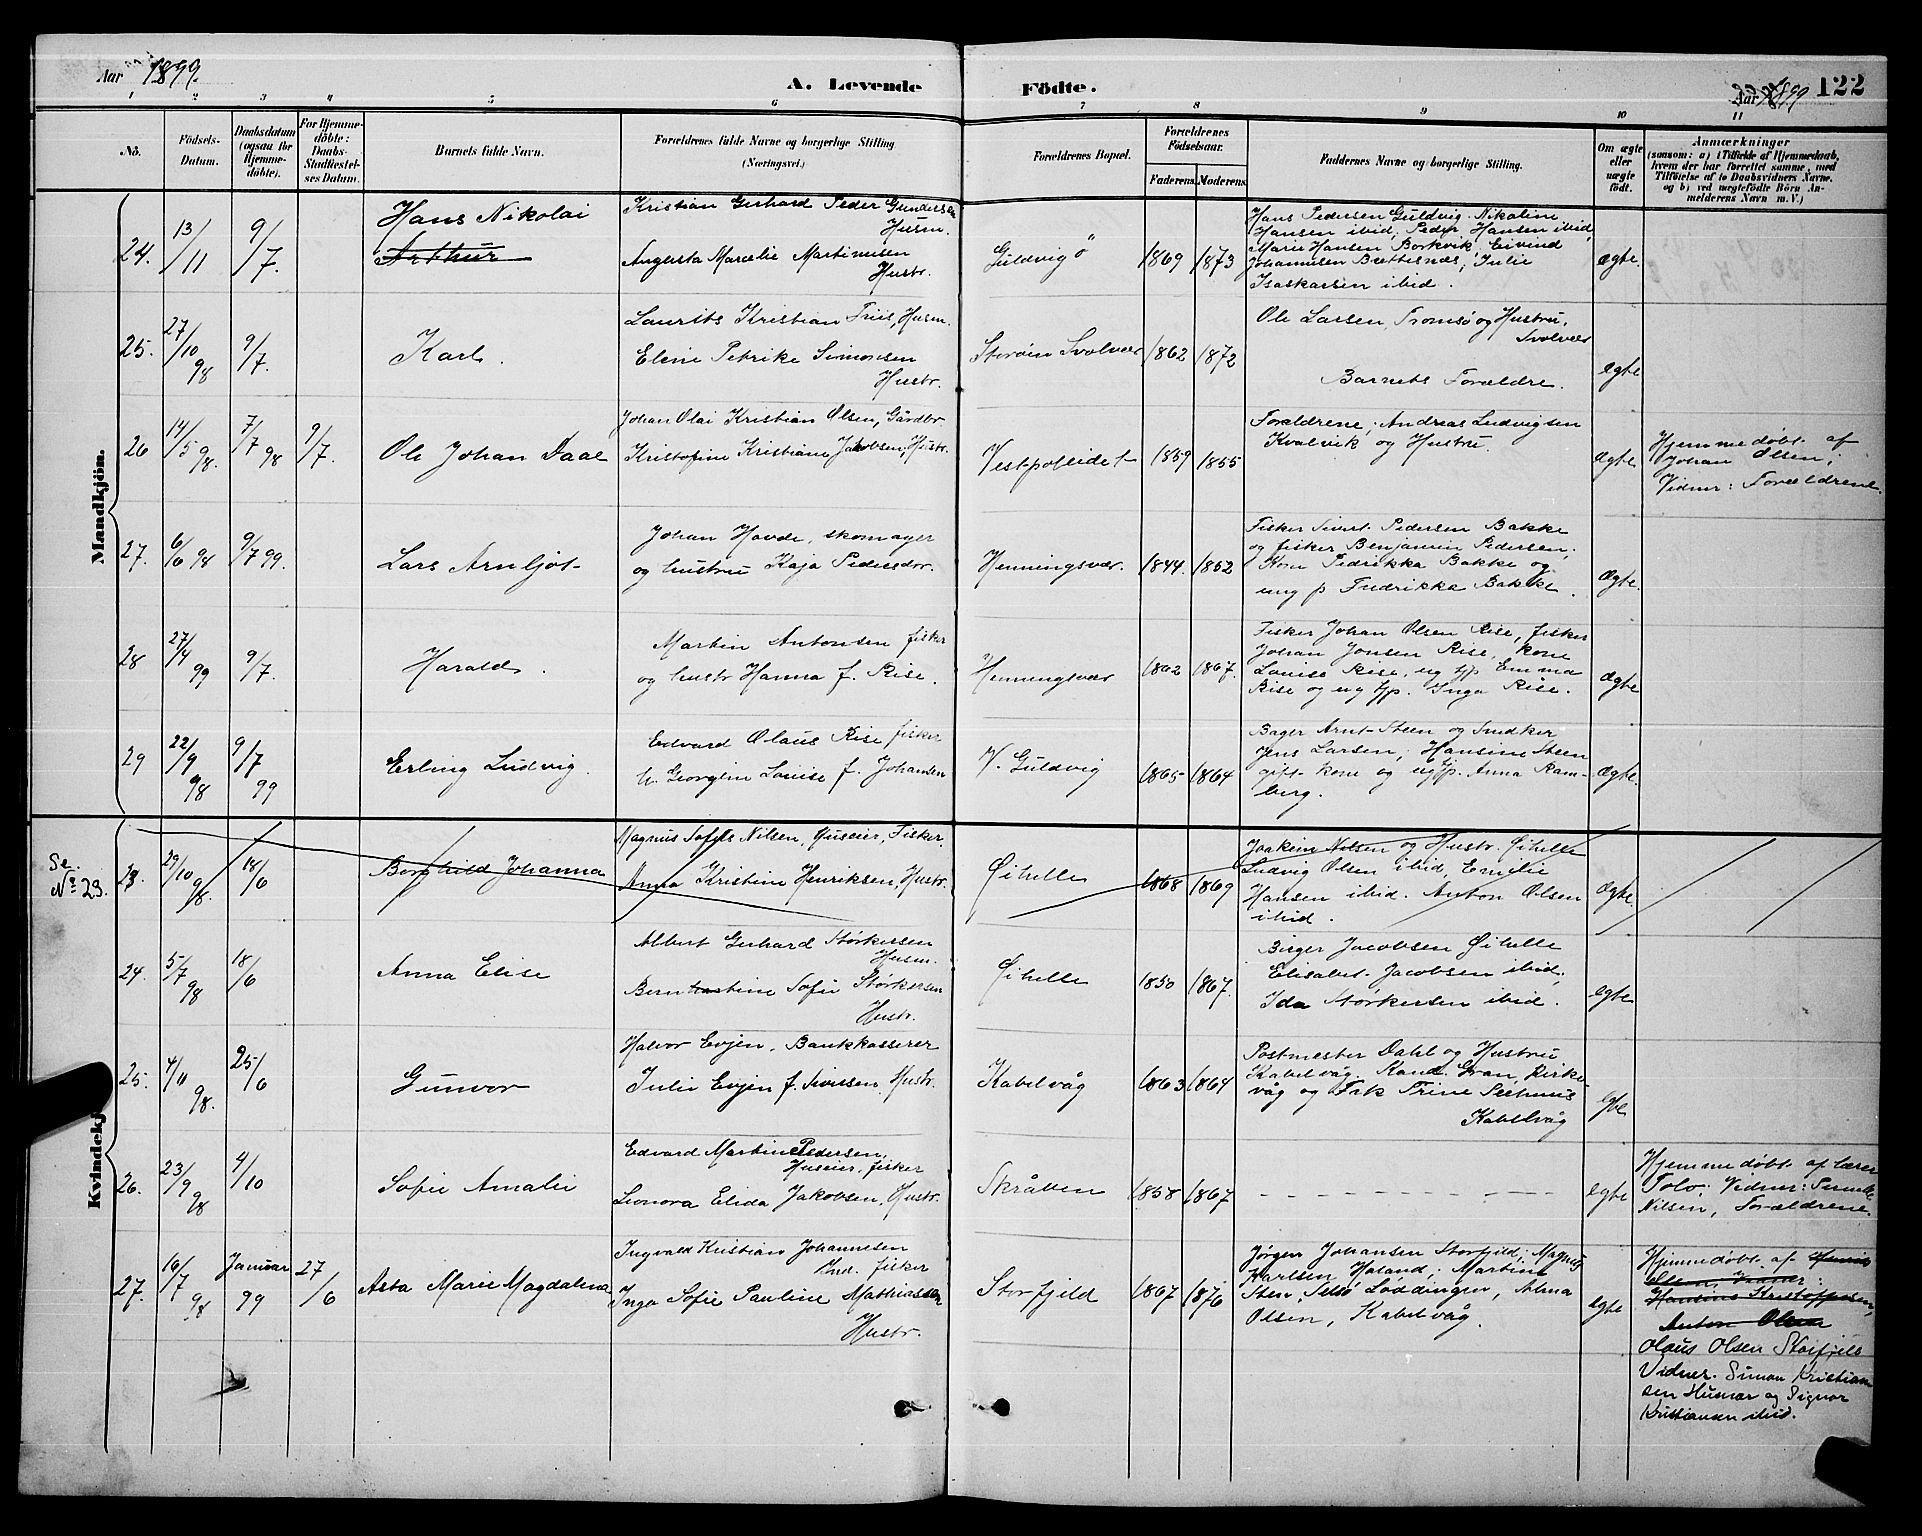 Aar 1899.
A. Levende Födte.
Aar 1899 122
1 2 3 4 5 6 7 8 9 10 11
No. Födsels-Datum. Daabsdatum (ogsaa for Hjemme-döbte). For Hjemme-döbte: Daabs-Stadfæstel-ses Datum. Barnets fulde Navn. Forældrenes fulde Navne og borgerlige Stilling (Næringsvei.) Forældrenes Bopæl. Forældrenes Födselsaar. Faderens. Moderens. Faddernes Navne og borgerlige Stilling. Om ægte eller uægte födt. Anmærkninger (saasom: a) i Tilfælde af Hjemmedaab, hvem der har forrettet samme, med Tilföielse af to Daabsvidners Navne. og b) ved uægtefödte Börn An-melderens Navn m. V.)
Mandkjön.
24. 13/11 9/7. Hans Nikolai Arthur
Kristian Gerhard Peder Gundersen Husm.
Augusta Marcelie Martinusen Hustr.
Guldvigö 1869 1873
Hans Pedersen Guldvig. Nikoline
Hansen ibid, Peder Hansen ibid,
Marie Hansen Borkvik, Eivind
Johannesen Brettesnæs, Julie
Isaksen ibid.
ægte
25. 27/10 98 9/7. Karl.
Laurits Kristian Friis, Husm.
Eline Petrike Simonsen Hustr.
Storöin Svolvær 1862 1872
Ole Larsen, Tromsö og Hustru, Svolvær
Barnets Forældre.
egte
26 14/5 98. 7/7 98 9/7. Ole Johan Daae
Johan Olai Kristian Olsen, Gårdbr
Kristofine Kristiane Jakobsen, Hustr.
Vestpolleidet 1859 1855
Forældrene; Andreas Ludvigsen
Kvalvik og Hustru.
ægte
Hjemmedøbt af
Johan Olsen;
Vidner: Forældrene.
27. 6/6 98 9/7 99. Lars Arnljot
Johan Hovde, skomager
og hustru Kaja Pedersdtr.
Henningsvær. 1844. 1852
Fisker Sivert Pedersen Bakke
og fisker Benjamin Pedersen.
Kone Pedrikka Bakke og
ung p Fredrikka Bakke.
Ægte.
28 27/4 99 9/7. Harald.
Martin Antonsen fisker
og hustr Hanna f. Rise.
Henningsvær 1862 1867.
Fisker Johan Olsen Rise, fisker
Johan Jonsen Rise, kone
Louise Rise, ug tjp Emma
Rise og ug tjp. Inga Rise.
Ægte
29 22/9 98 9/7 99 Erling Ludvig.
Edvard Olaus Rise fisker
h. Georgine Louise f. Johansen
V. Guldvig 1865 1864
Bager Arnt Steen og Snedker
Jens Larsen; Hansine Steen
gift kone og ug tjp. Anna Ram-
berg.
Ægte.
Kvindekj
Se. No 23.
23. 29/10 98. 18/6 Borghild Johanna
Magnus Tofels Nilsen, Huseier, Fisker.
Anna Kristine Henriksen, Hustr.
Öihelle 1868 1869
Joakim Nilsen og Hustr. Öihelle
Ludvig Olsen ibid, Emilie
Hansen ibid. Anton Olsen
ibid.
Ægte
24. 5/7 98 18/6 Anna Elise
Albert Gerhard Størkersen Husm.
Bernhastine Sofie Størkersen Hustr.
Öihelle 1850 1867.
Birger Jacobsen Öihelle
Elisabet Jacobsen ibid;
Ida Størkersen ibid.
egte
25. 4/11 98. 25/6 Gunvor
Halvor Evjen, Bankkasserer
Julie Evjen f. Sivusen, Hustr.
Kabelvåg 1863 1864
Postmester Dahl og Hustru
Kabelvåg. Kand. Gran, Kirke-
våg og Frk Trine Seehuus
Kabelvåg
egte
26. 23/9 98 4/10 Sofie Amalie
Edvard Martin Pedersen, Huseier, fisker
Leonora Elida Jakobsen, Hustr.
Skråven 1858 1867
egte
Hjemmedøbt af lærer
Tolo; Vidner:
Nilsen, Forældrene.
27. 16/7 98 Januar 99 27/6 Asta Marie Magdalena
Ingvald Kristian Johannesen Ind. fisker
Inga Sofie Pauline Mathiassen Hustr.
Storfjeld 1867 1876
Jørgen Johansen Storfjeld; Magnus
Karlsen Holand; Martine
Sten, Lødingen, Alma
Olsen, Kabelvåg.
egte
Hjemmedøbt af
Olsen,
Hansine Kristoffersen,
Anton Olsen
Olaus Olsen Storfjeld
Vidner. Simon Kristian
sen Husmor og Signor
Kristiansen ibid.